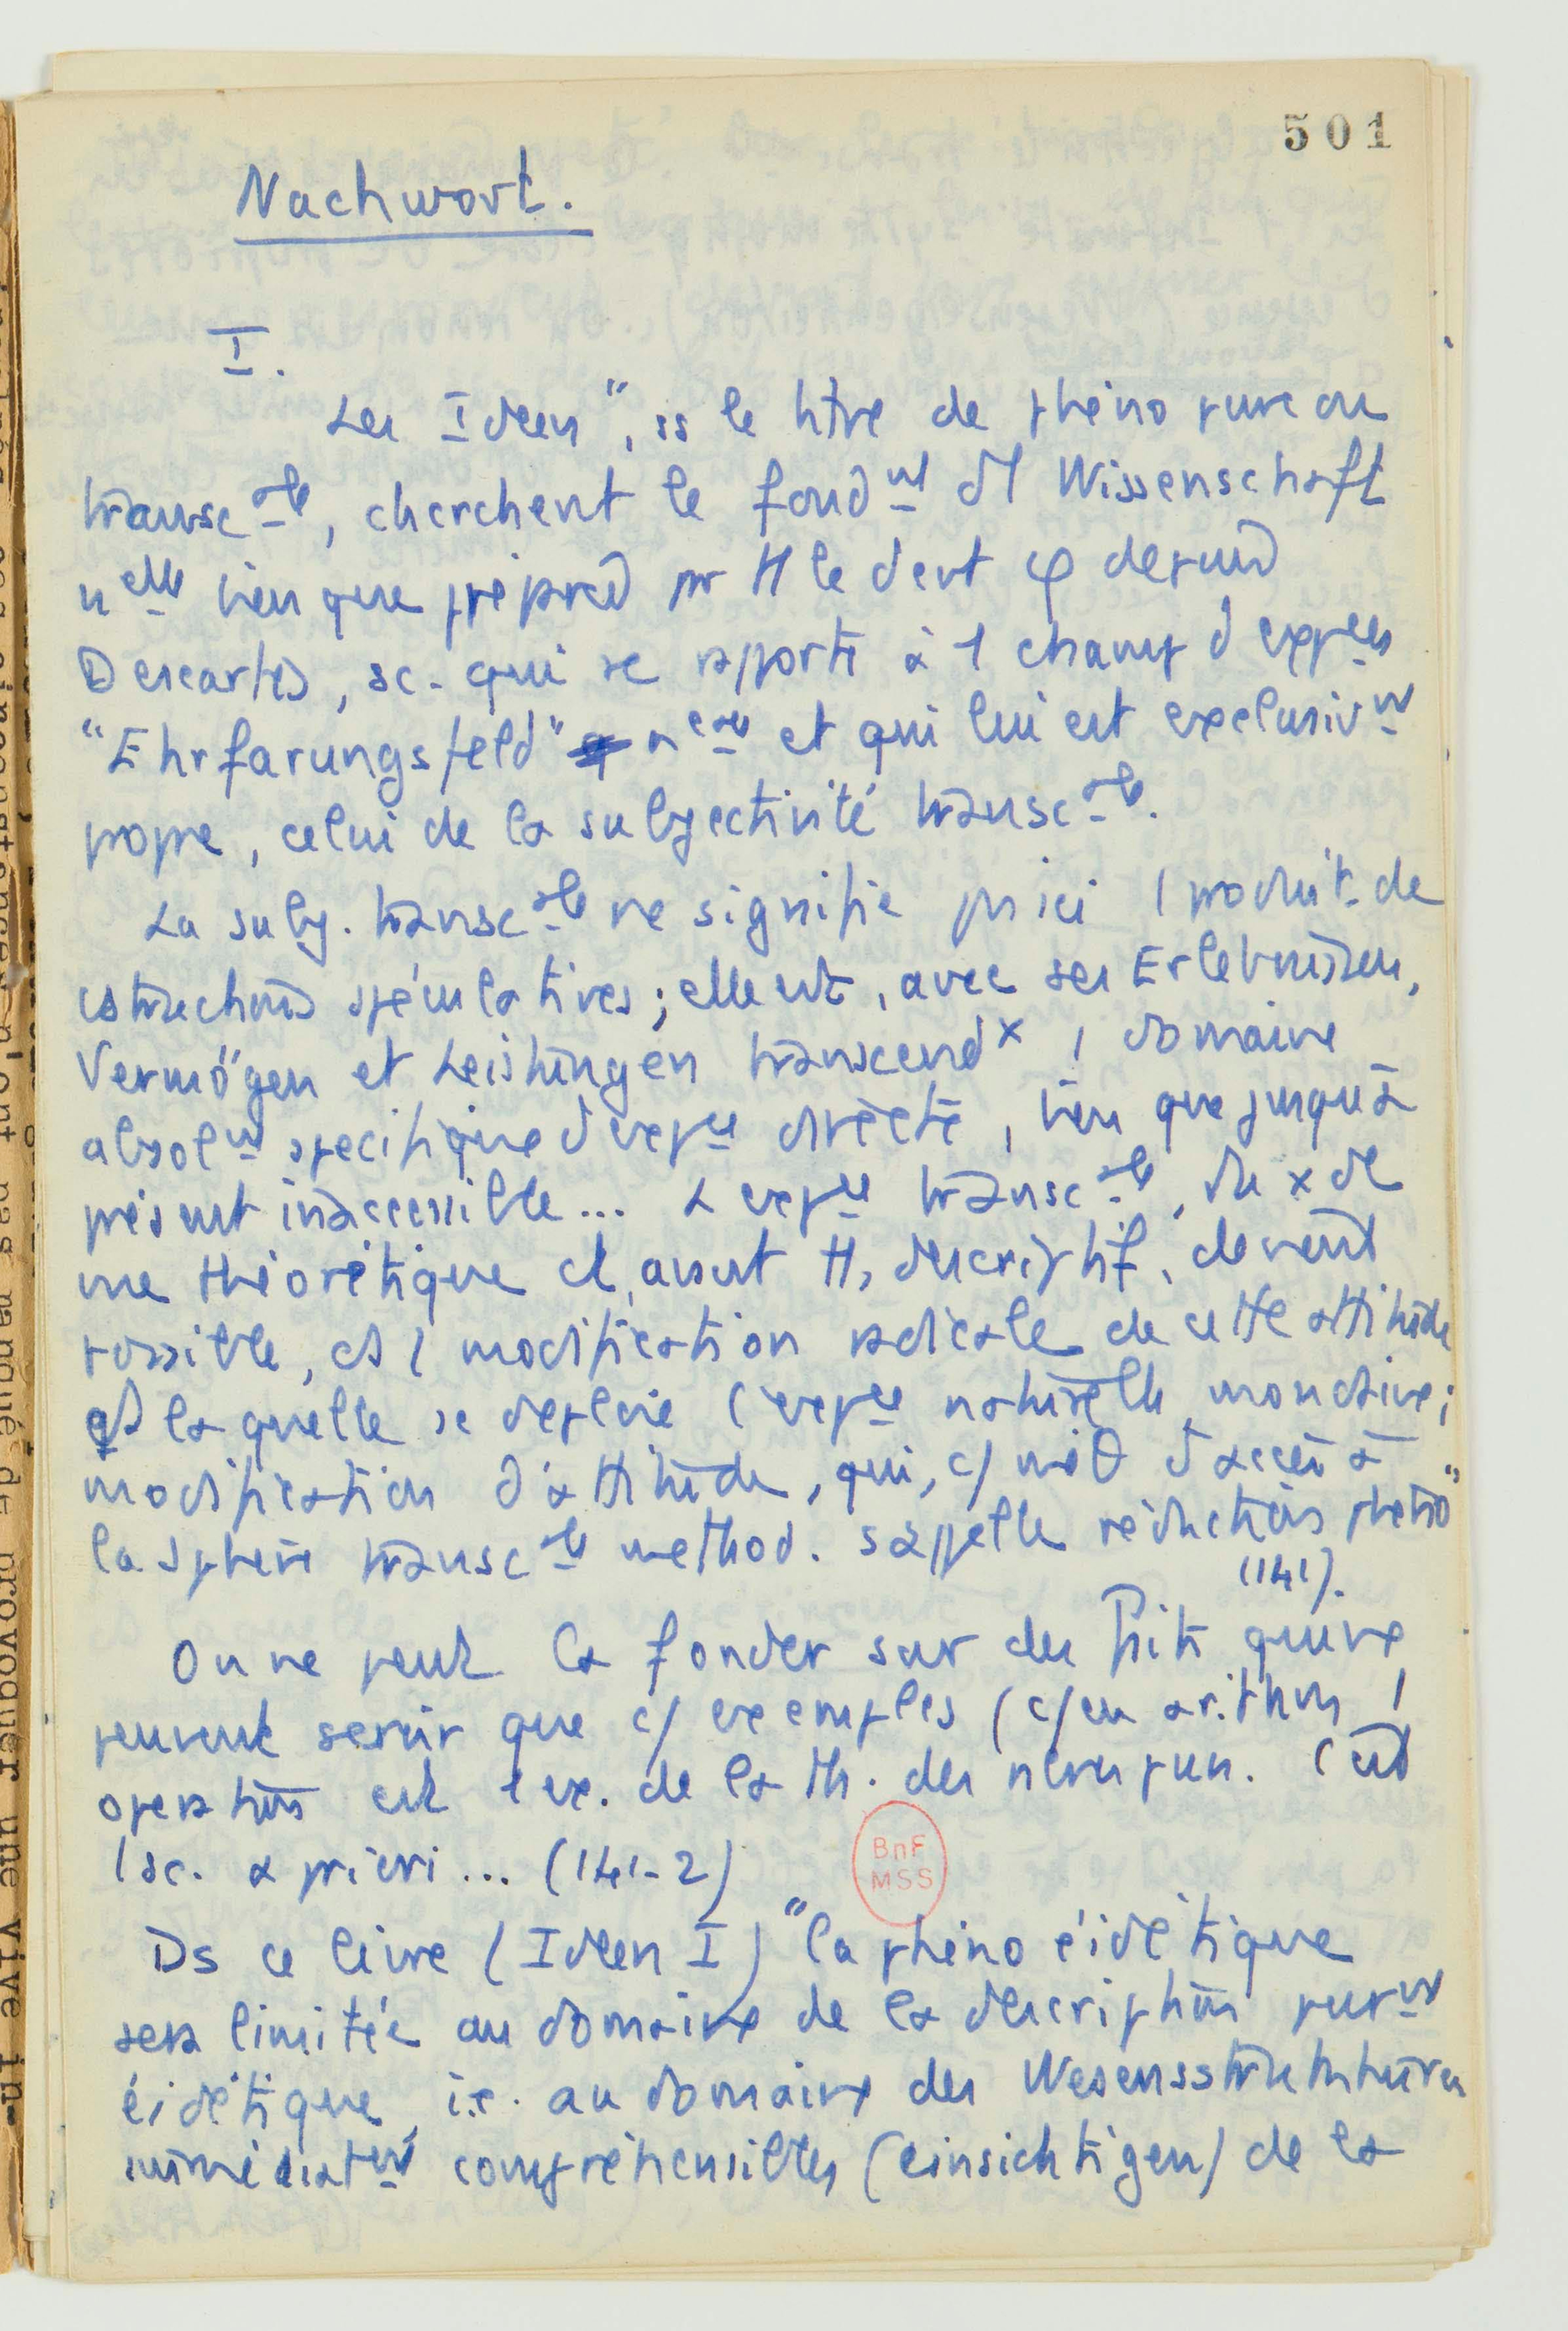 501
Nachwort.
I.
Les Ideen", ss le titre de phéno pure ou
transc ale, cherchent le fond nt d'1 Wissenschaft
n elle bien que préparée pr H le dvt φ depuis
Descartes, sc. qui se rapporte à 1 champ d'exp ces
"Ehrfarungsfeld" n eau et qui lui est exclusiv nt
propre, celui de la subjectivité transc ale.
La subj. transc ale ne signifie ici 1 produit de
cstructions spéculatives; elle est, avec ses Erlebnissen,
Vermögen et Leistungen transcend x 1 domaine
absol nt spécifique d'exp ce directe, bien que jusqu'à
présent inaccessible... L'exp ce transc ale,
une théorétique et, avant tt, descriptif, devient
possible, ds 1 modification radicale de cette attitude
ds laquelle se déploie l'exp ce naturelle, mondaine;
modification d'attitude, qui, c/ méth d'accès à
la sphère transc ale méthod. s'appelle réduction phéno"
(141).
On ne peut la fonder sur des qui ne
peuvent servir que c/ exemples (c/ en arithm 1
opération est 1 ex. de la th. des nbres purs. C'est
1 sc. a priori... (141-2)
BnF
MSS
Ds ce livre (Ideen I) "la phéno éidétique
sera limitée au domaine de la description pur nt
éidétique, i.e. au domaine des Wesensstrukturen
immédiat nt compréhensibles (einsichtigen) de la